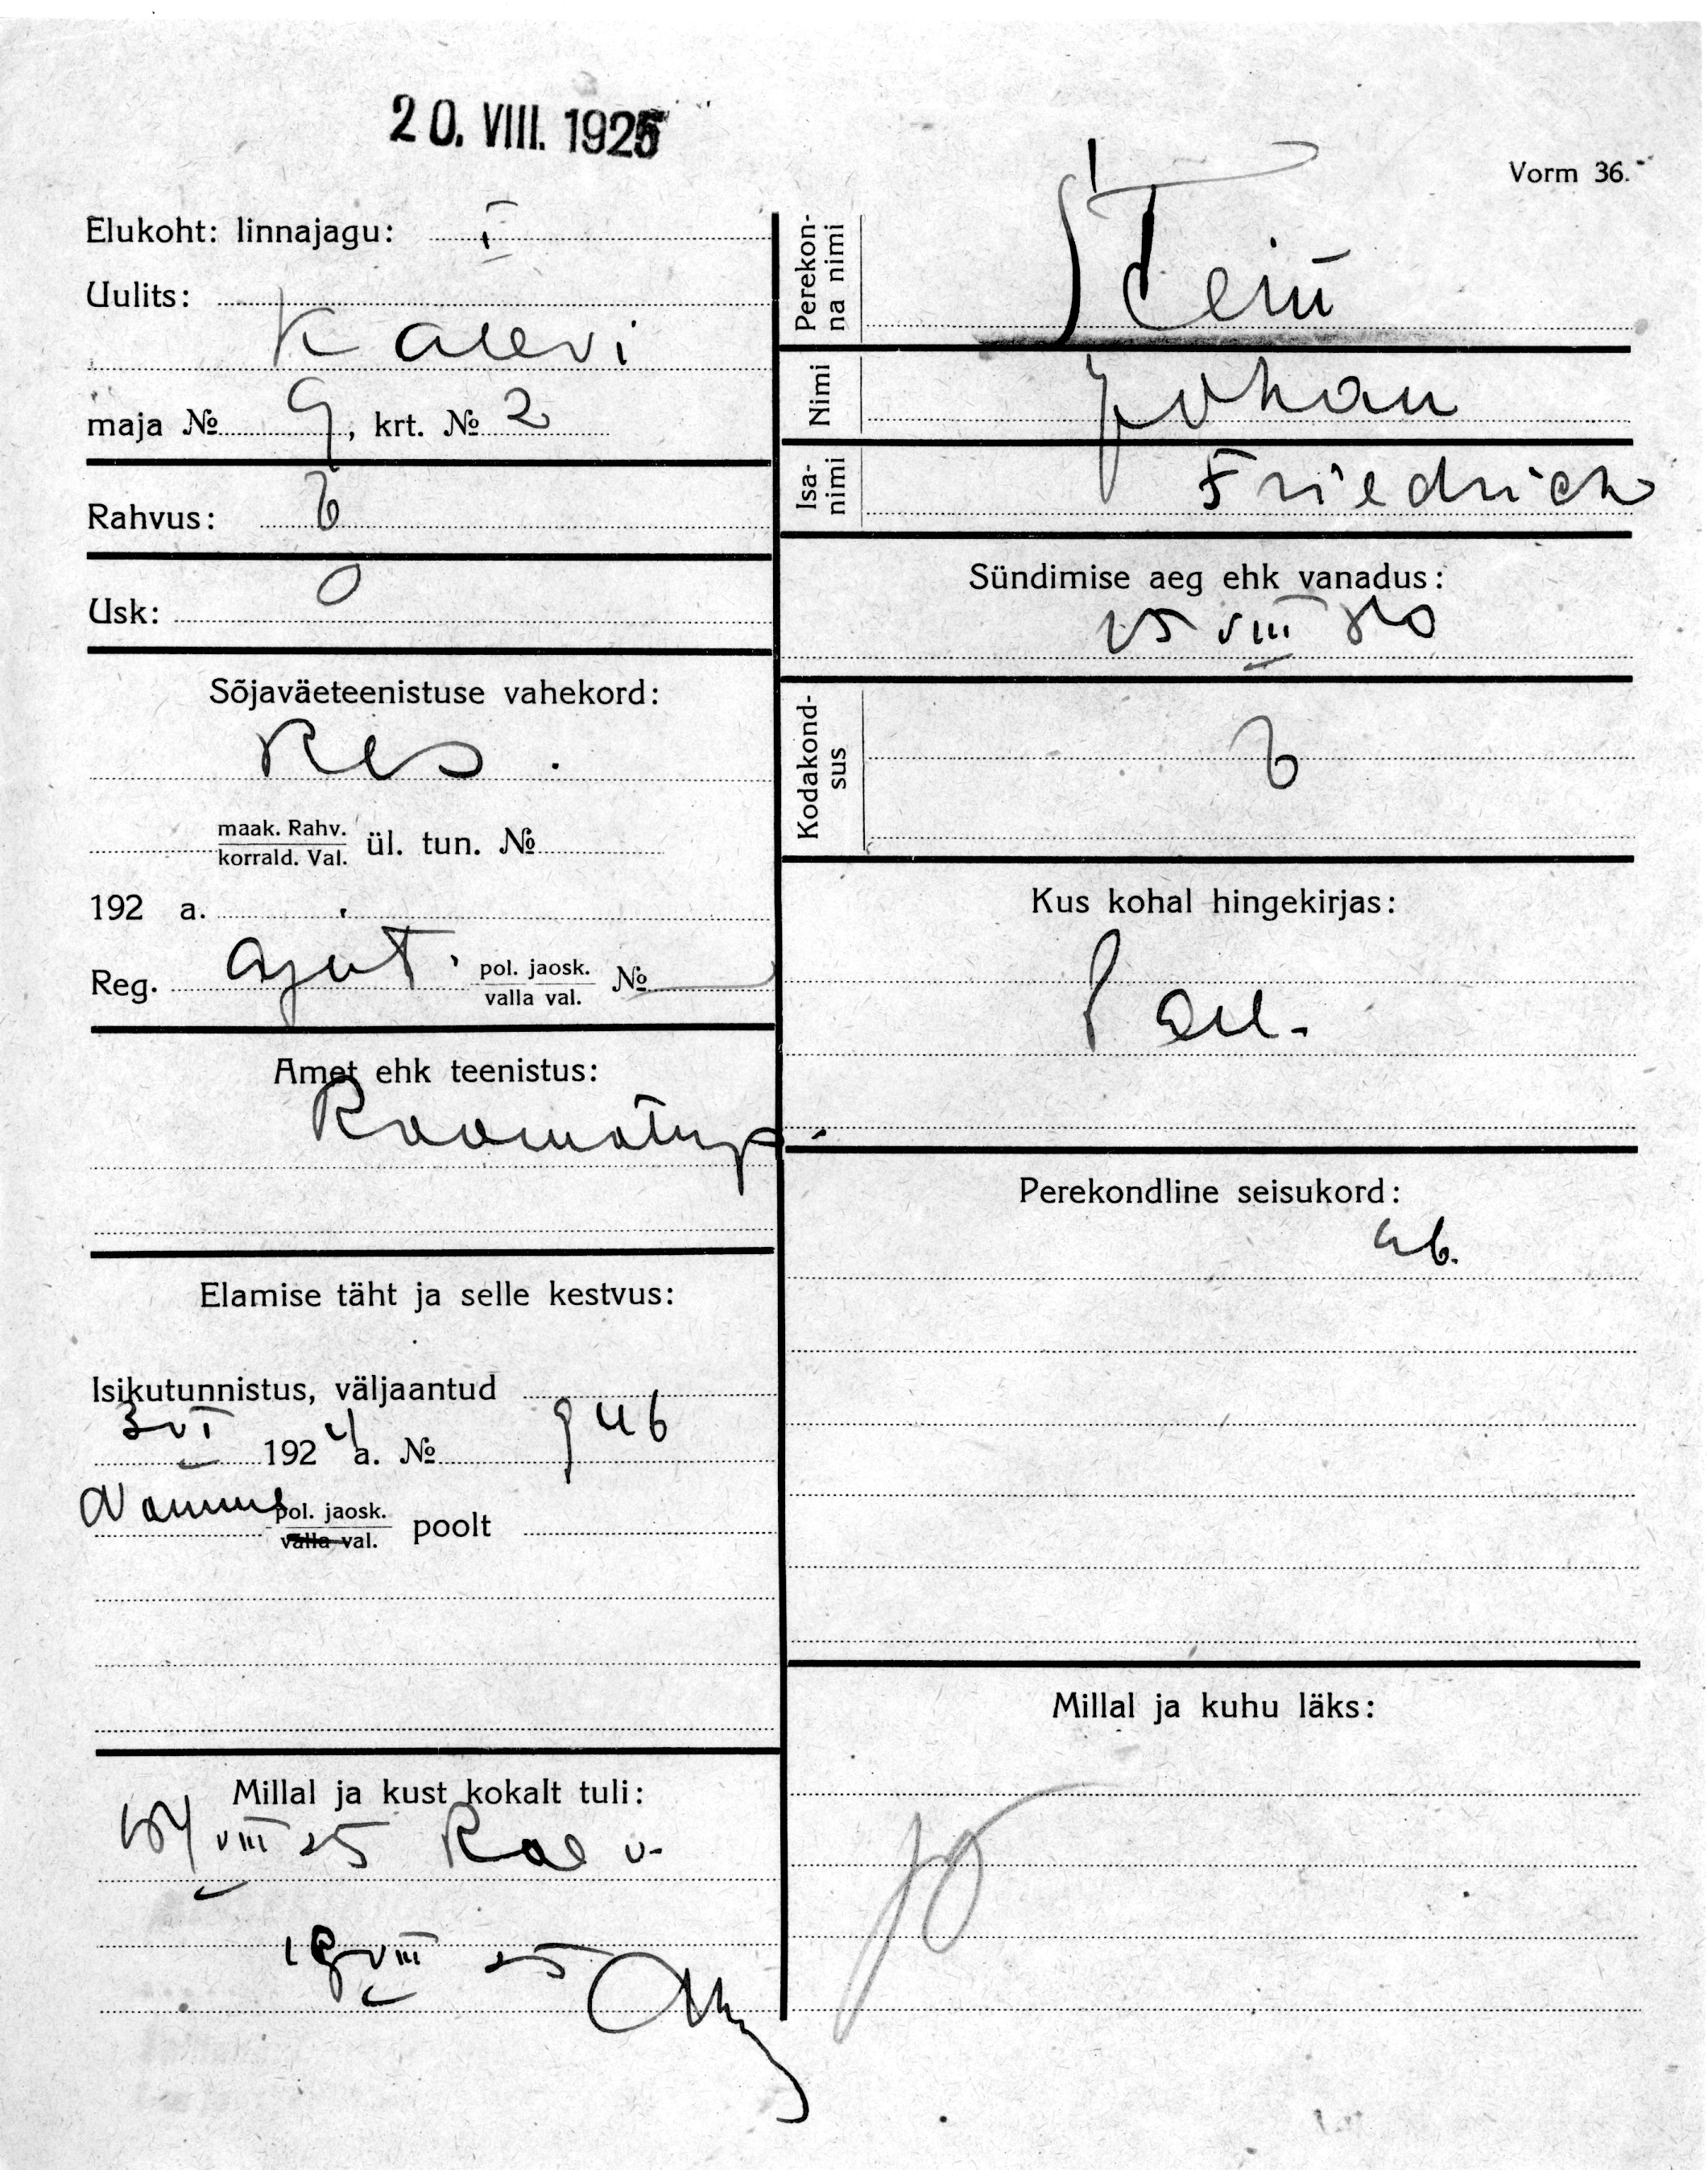 20. VIII. 1925
Vorm 36.
Elukoht: linnajagu: I
Uulits:
Kalevi
maja № 9, krt. № 2
Rahvus: E
Usk: O
Sõjaväeteenistuse vahekord:
Res.
maak. Rahv.
korrald. Val. ül. tun. №
192 a.
Reg. ajut. pol. jaosk.
valla val. №
Amet ehk teenistus:
Raamatup.
Elamise täht ja selle kestvus:
Isikutunnistus, väljaantud
3 VI 1924 a. № 946
Nõmme pol. jaosk.
valla val. poolt
Millal ja kust kokalt tuli:
VIII 25 Rae v-
19 VIII 25
Perekonna nimi
Stein
Nimi
Johan
Isanimi
Friedrich
Sündimise aeg ehk vanadus:
15 VIII
Kodakondsus
E
Kus kohal hingekirjas:
Perekondline seisukord:
ab.
Millal ja kuhu läks: